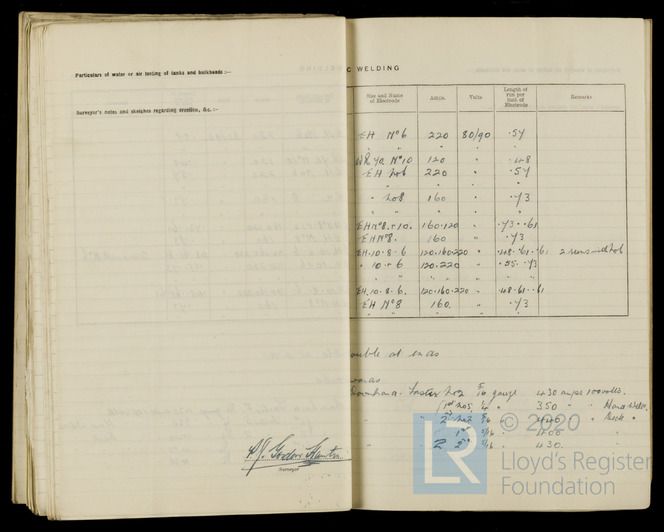 Particulars of water or air testing of tanks and bulkheads :—
Surveyor's notes and sketches regarding erection, &c. :—
Surveyor
C WELDING
Size and Name of Electrode Amps. Volts Length of run per inch of Electrode Remarks
EH Nº 6 220 80/90 .54
" " " "
Nº 10 120 " .48
EH Nº 6 220 " .54
" " " "
" Nº 8 160 " .73
" " " "
EH Nº 8 + 10. 160.120 " .73 .61
EH Nº 8. 160 " .73
EH.10.8.6 120.160.220 " .48.61.61 2 runs with Nº 6
" 10 + 6 120.220 " .73
" " " " "
EH.10.8.6. 120.160.220 " .48.61.61
EH Nº 8 160. " .73
" " " "
at ends
gauge 430 amps 100 volts.
" 350 " " Hand Weld.
" 440 " "
" 400 "
" 430. "
© 2020
LR
Lloyd's Register
Foundation